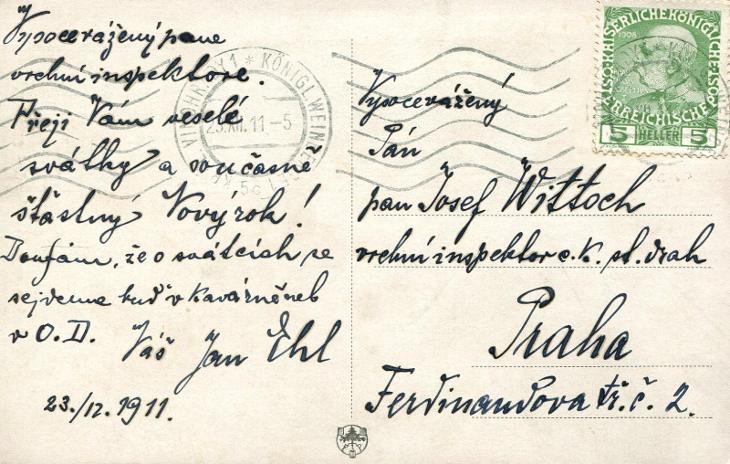 Vysocevážený pane
vrchní inspektore.
Přeji Vám veselé
svátky a současně
šťastný Nový rok!
Doufám, že o svátcích se
sejdeme buď v kavárně neb
v O.D. Váš Jan Ehl
23./12. 1911.
VINOHRADY 1 * KÖNIGL. WEIN
23.XII.11-5
Vysocevážený
Pán
pan Josef Wittoch
vrchní inspektor c.k. st. drah
Praha
Ferdinandova tř. č. 2.
KAISERLICHE KÖNIGLICHE
1908
ÖSTERREICHISCHE POST
5 HELLER 5